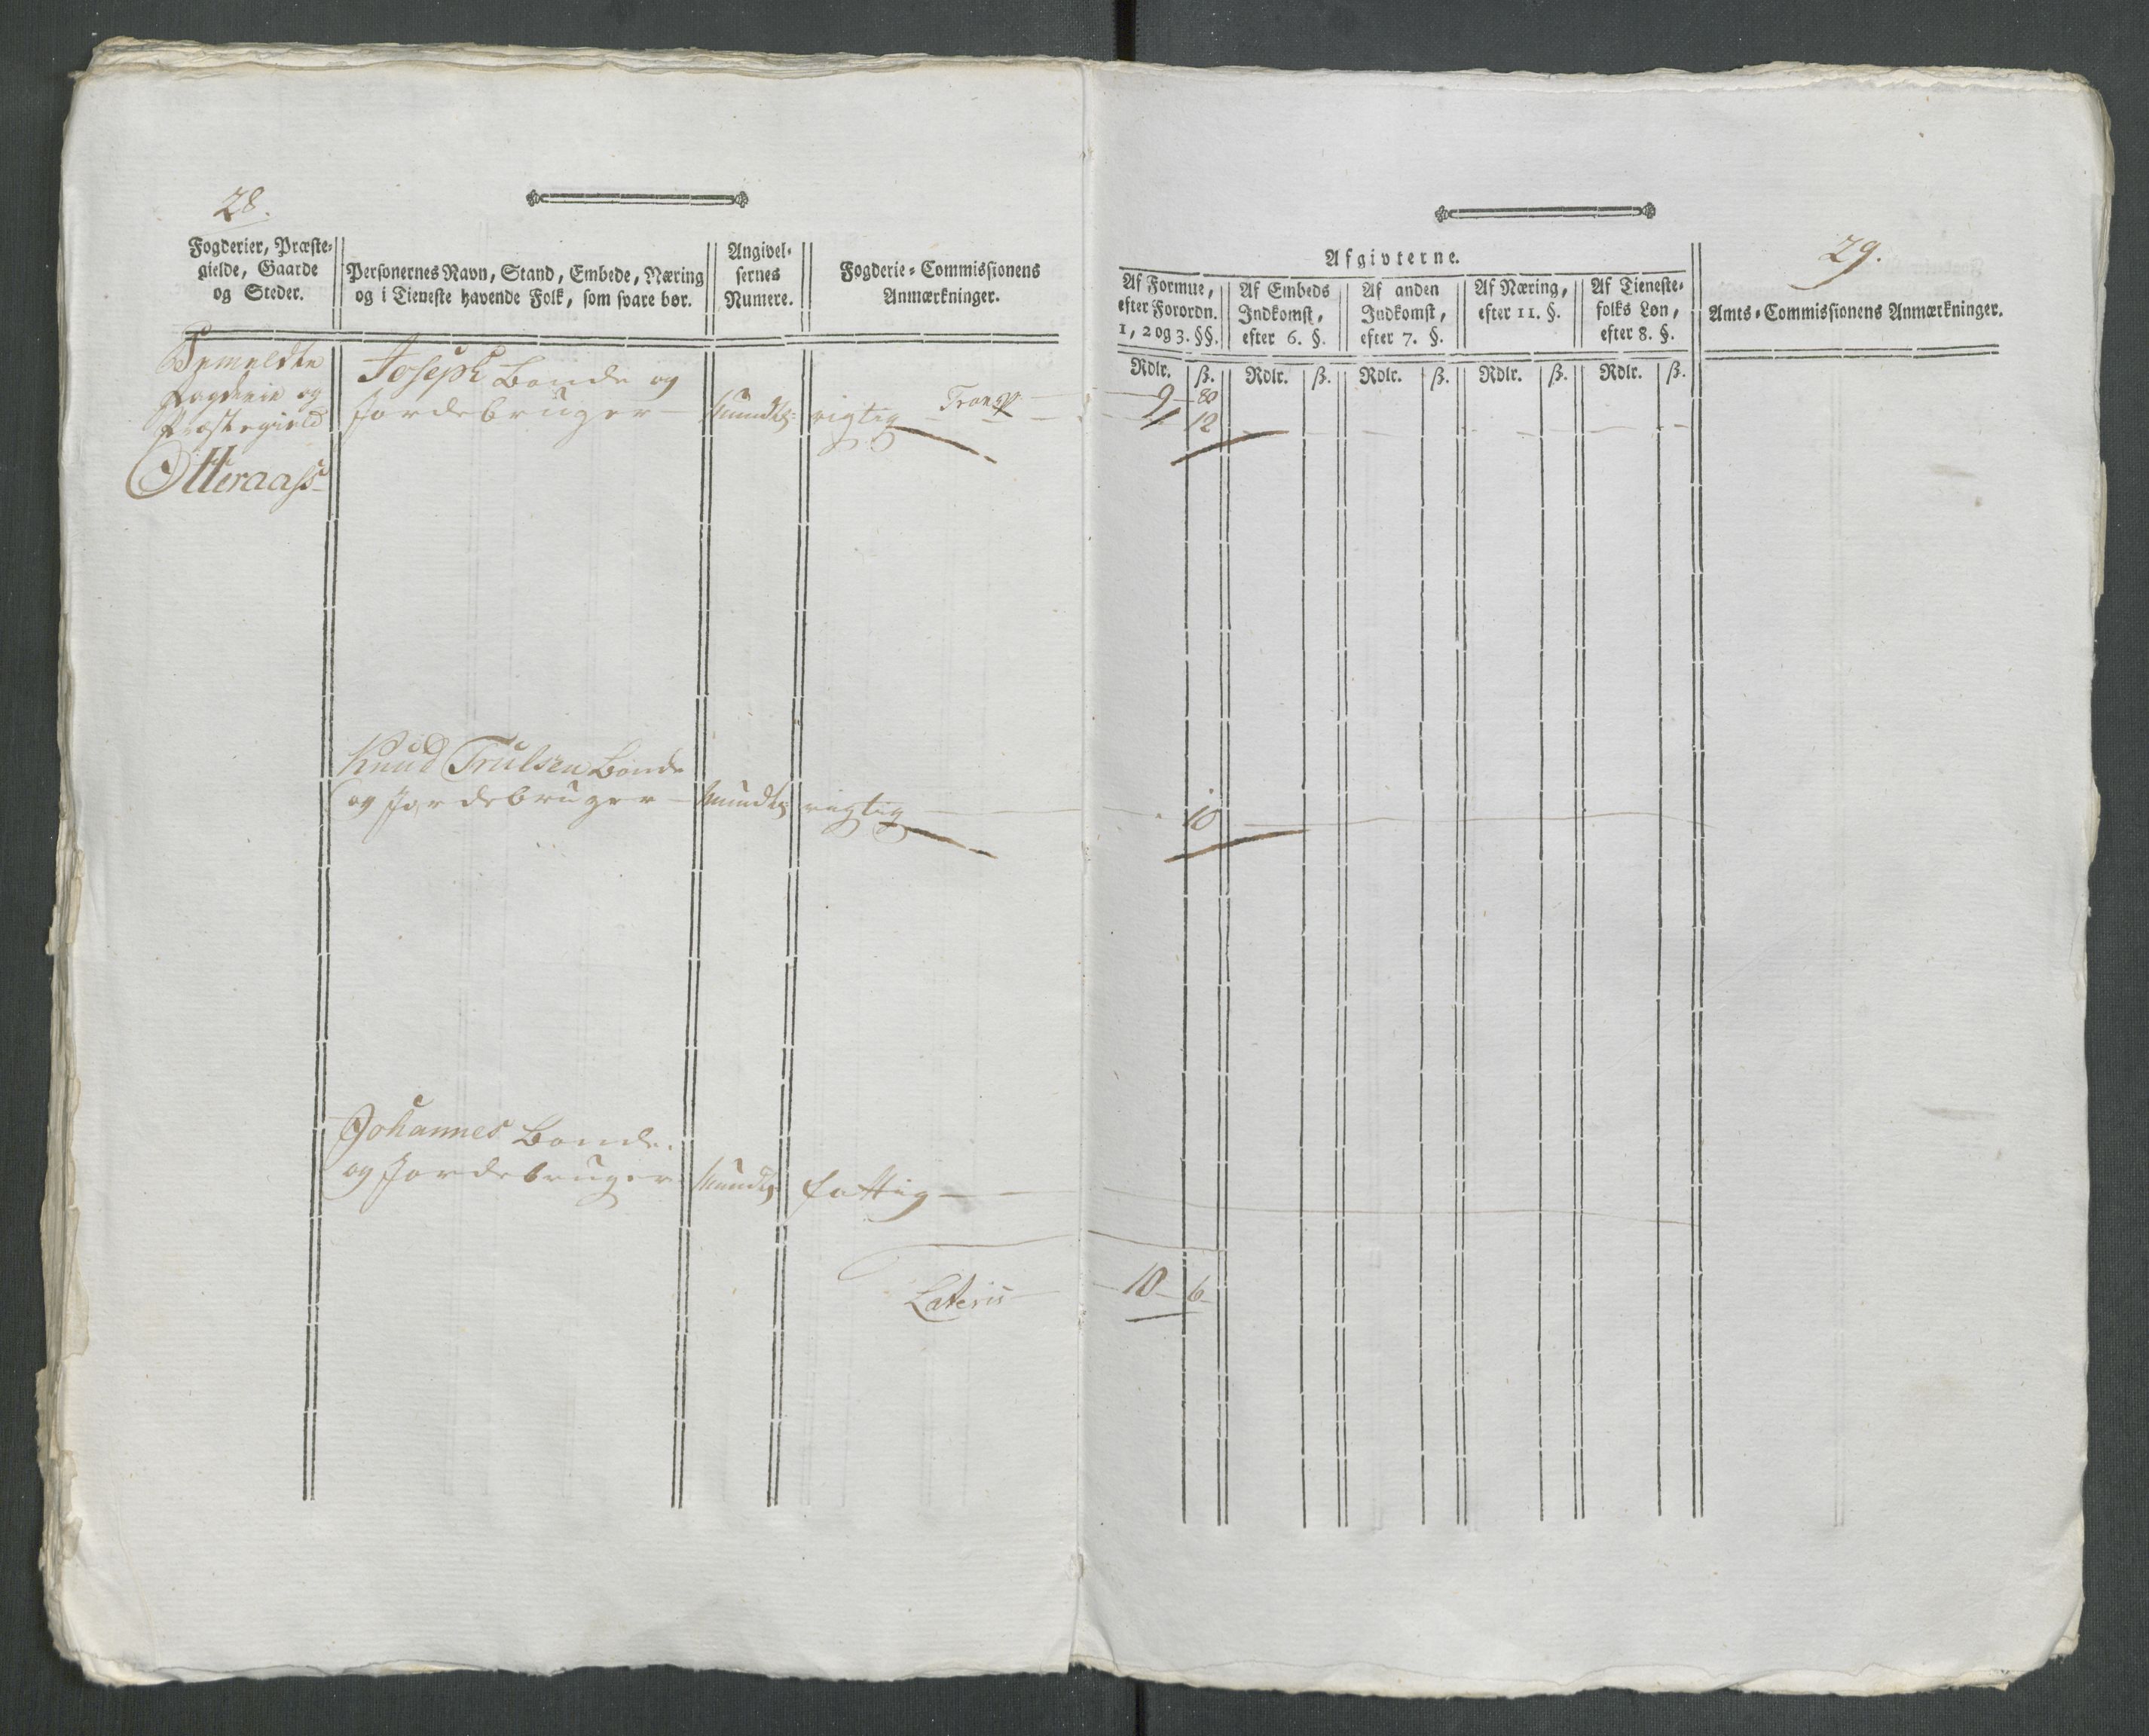 28.
Fogderier, Præste-
gielde, Gaarde
og Steder.
Personernes Navn, Stand, Embede, Næring
og i Tieneste havende Folk, som svare bør.
Angivel-
sernes
Numere.
Fogderie-Commissionens
Anmærkninger.
Bemeldte
Fogderie og
Præstegield
Otteraass
Joseph Bonde og
Jordebruger
mundtl: rigtig Transp
Knud Trulsen Bonde
og Jordebruger mundtl rigtig
Johannes Bonde
og Jordebruger mundtl fattig
Lateris
29.
Afgivterne.
Af Formue,
efter Forordn.
1, 2 og 3. §§.
Af Embeds
Indkomst,
efter 6. §.
Af anden
Indkomst,
efter 7. §.
Af Næring,
efter 11. §.
Af Tieneste-
folks Løn,
efter 8. §.
Amts-Commissionens Anmærkninger.
Rdlr. ß. Rdlr. ß. Rdlr. ß. Rdlr. ß. Rdlr. ß.
9 80
12
10
10 6